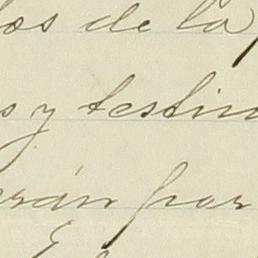 os de la
s y testim
rán por